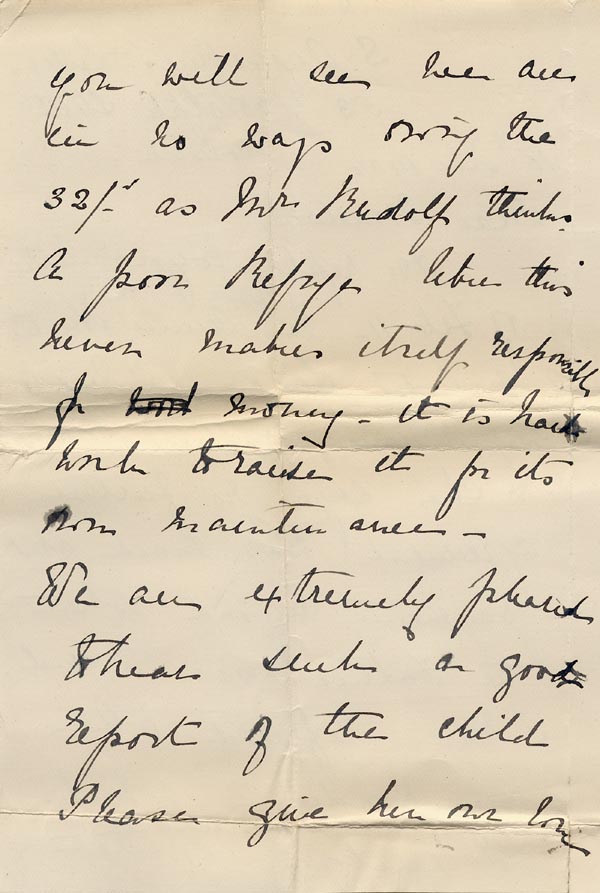 you will see we are
in no ways owing the
32/-d as Mr Rudolf thinks.
A poor Refuge like this
never makes itself responsible
for money - it is hard
work to raise it for its
own maintenance -
We are extremely pleased
to hear such a good
report of the child
Please give her our love